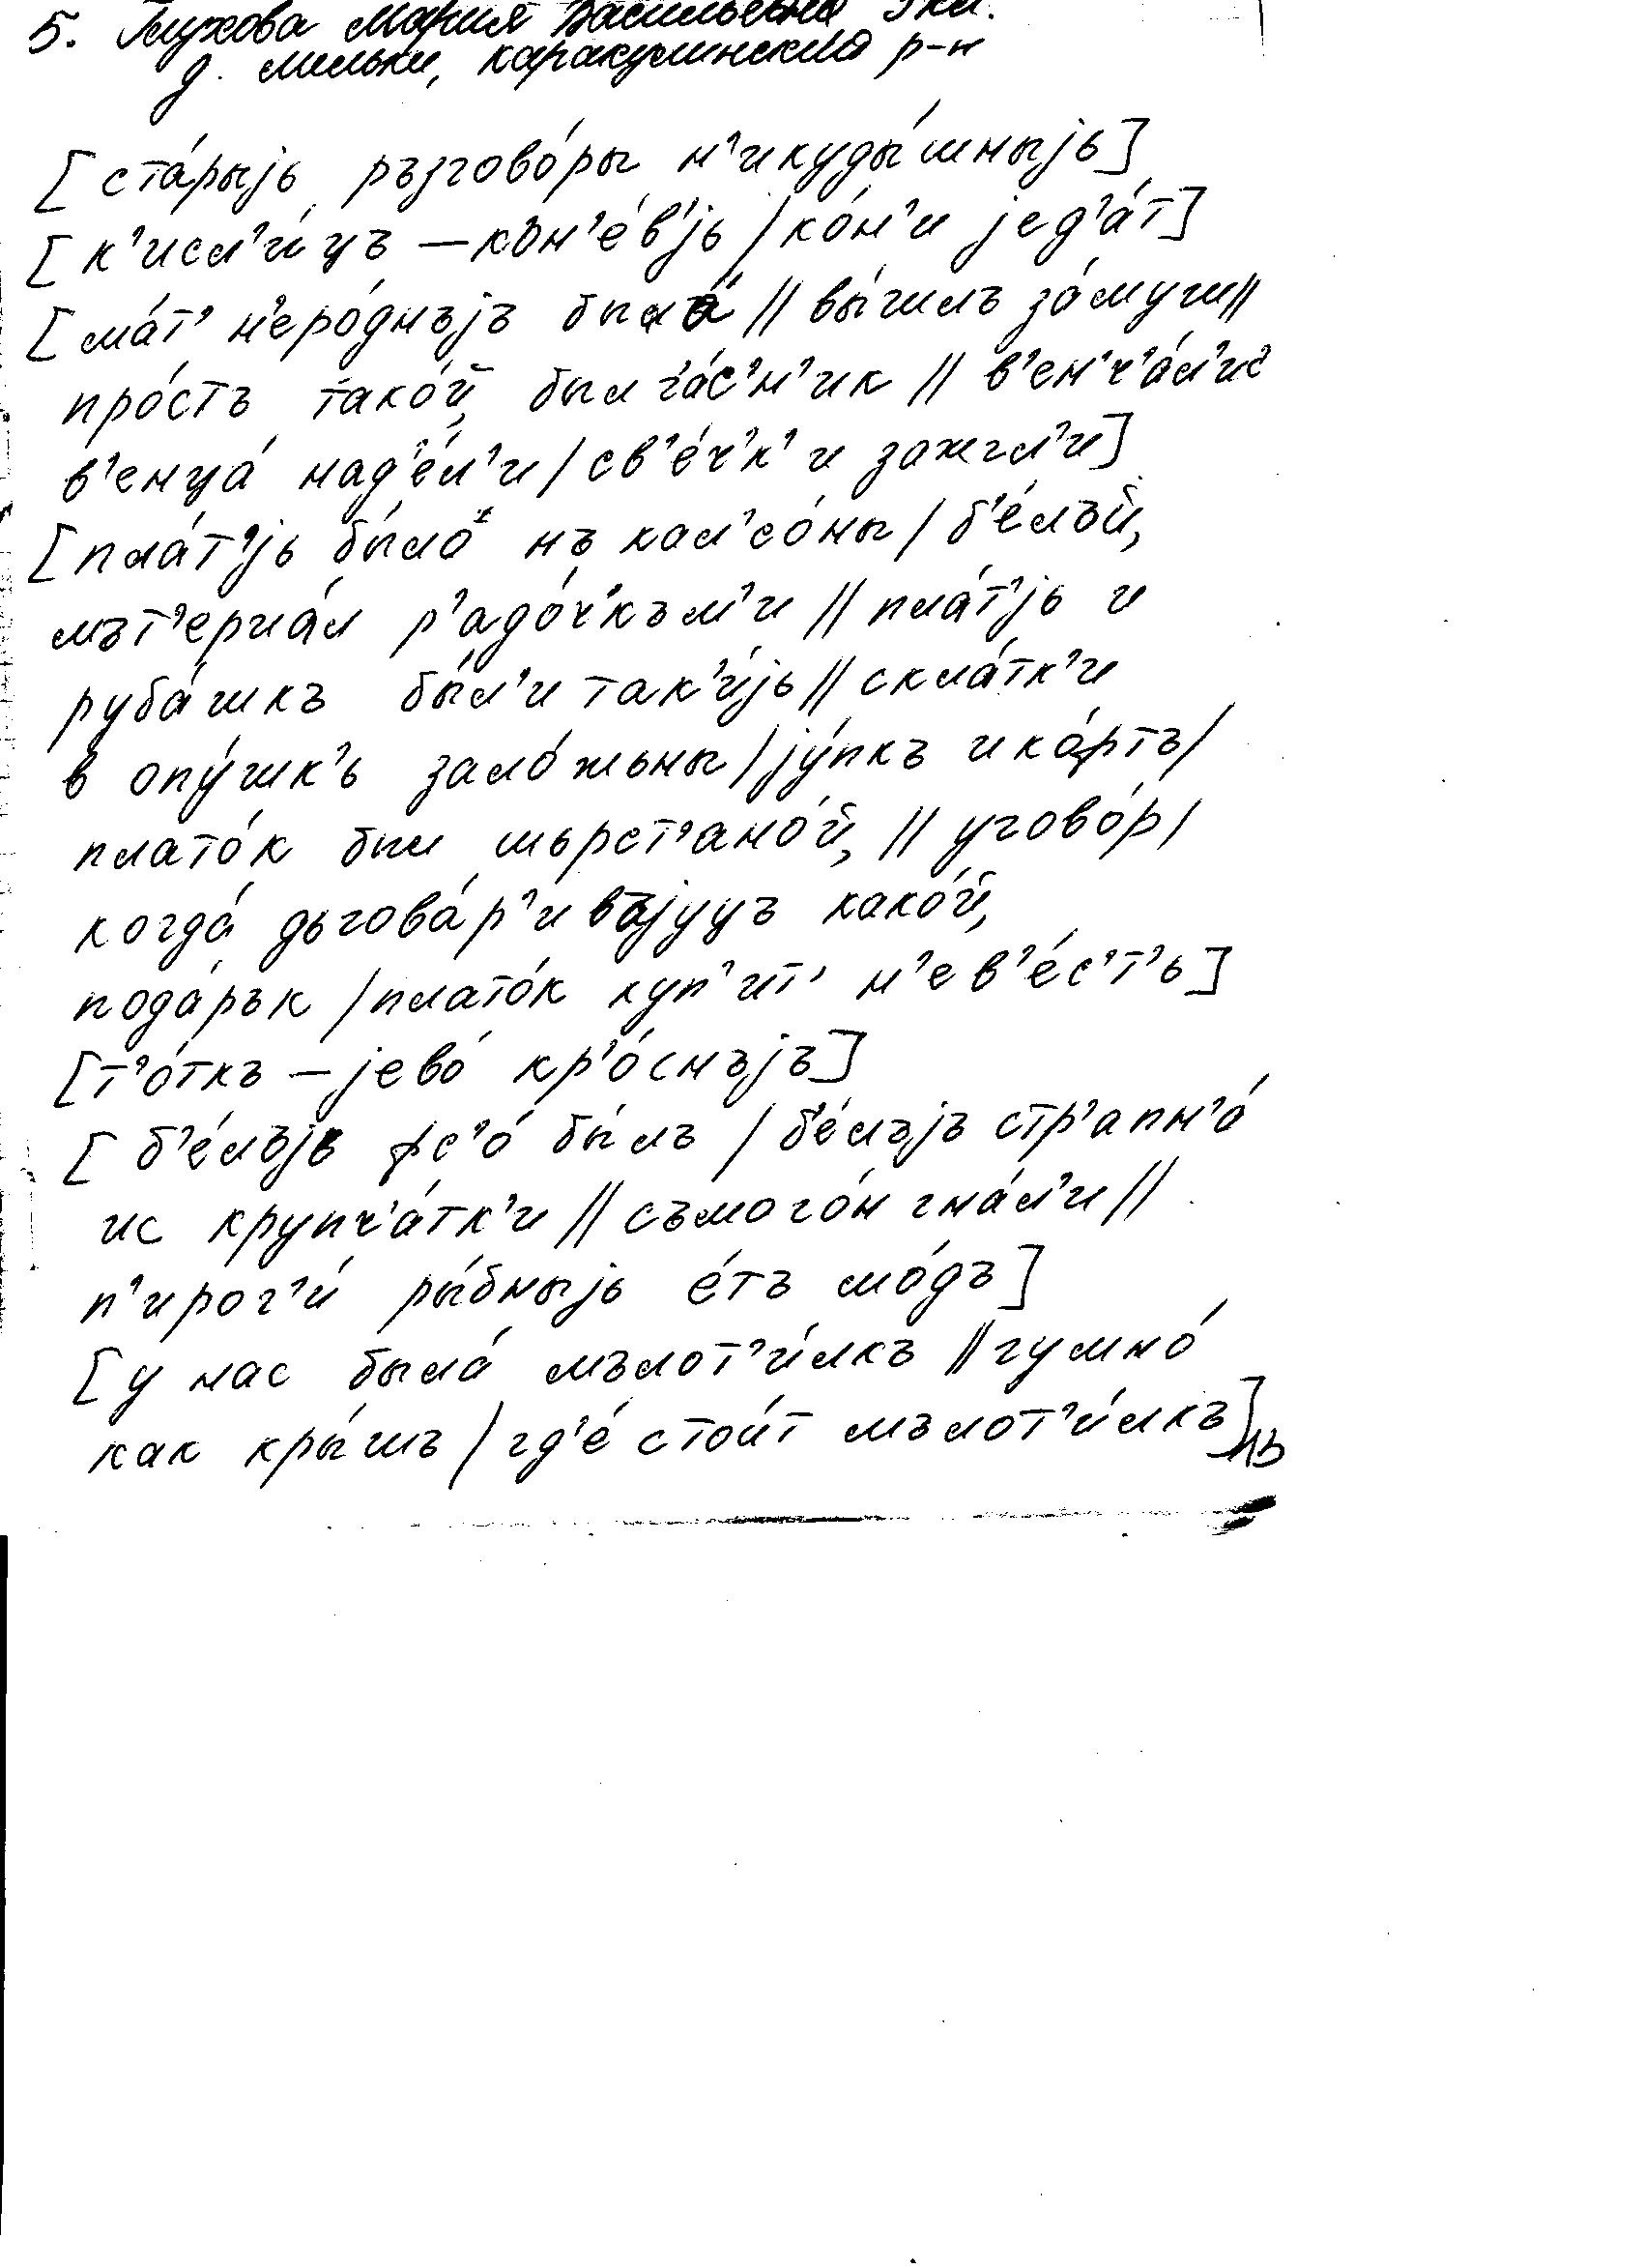 5. Глухова Мария Васильевна 3 кл.
д. Мыльки, Каракулинский р-н
[ста́рыjь ръзгово́ры н'икуды́шныjь]
[к'исл'и́цъ – кон'е́в'jь / ко́н'и jед'а́т]
[ма́т' н'еро́днъjъ была́ // вы́шлъ за́муш //
про́стъ тако́й, был ча́с'н'ик // в'ен'ч'а́л'ис'
в'енца́ над'е́л'и / св'е́ч'к'и зажгл'и]
[пла́т'jь бы́лоъ нъ кал'со́ны / б'е́лъй,
мът'ериа́л р'адо́ч'към'и // пла́т'jь и
руба́шкъ бы́л'и так'и́jь // скла́тк'и
в опу́шк'ь зало́жьны / jу́пкъ и ко́ртъ /
плато́к был шьрст'ано́й, // угово́р /
когда́ дъгова́р'ивъjуцъ како́й,
пода́рък / плато́к куп'ит' н'ев'е́с'т'ь]
[т'о́ткъ – jево́ кр'о́снъjъ]
[б'е́лъjь фс'о́ бы́лъ / б'е́лъjъ стр'апн'о́
ис крупч'а́тк'и // съмого́н гна́л'и //
п'ирог'и́ ры́бныjь е́тъ мо́дъ]
[у нас была́ мълот'и́лкъ // гумно́
как кры́шъ / гд'е́ стои́т мълот'и́лкъ]